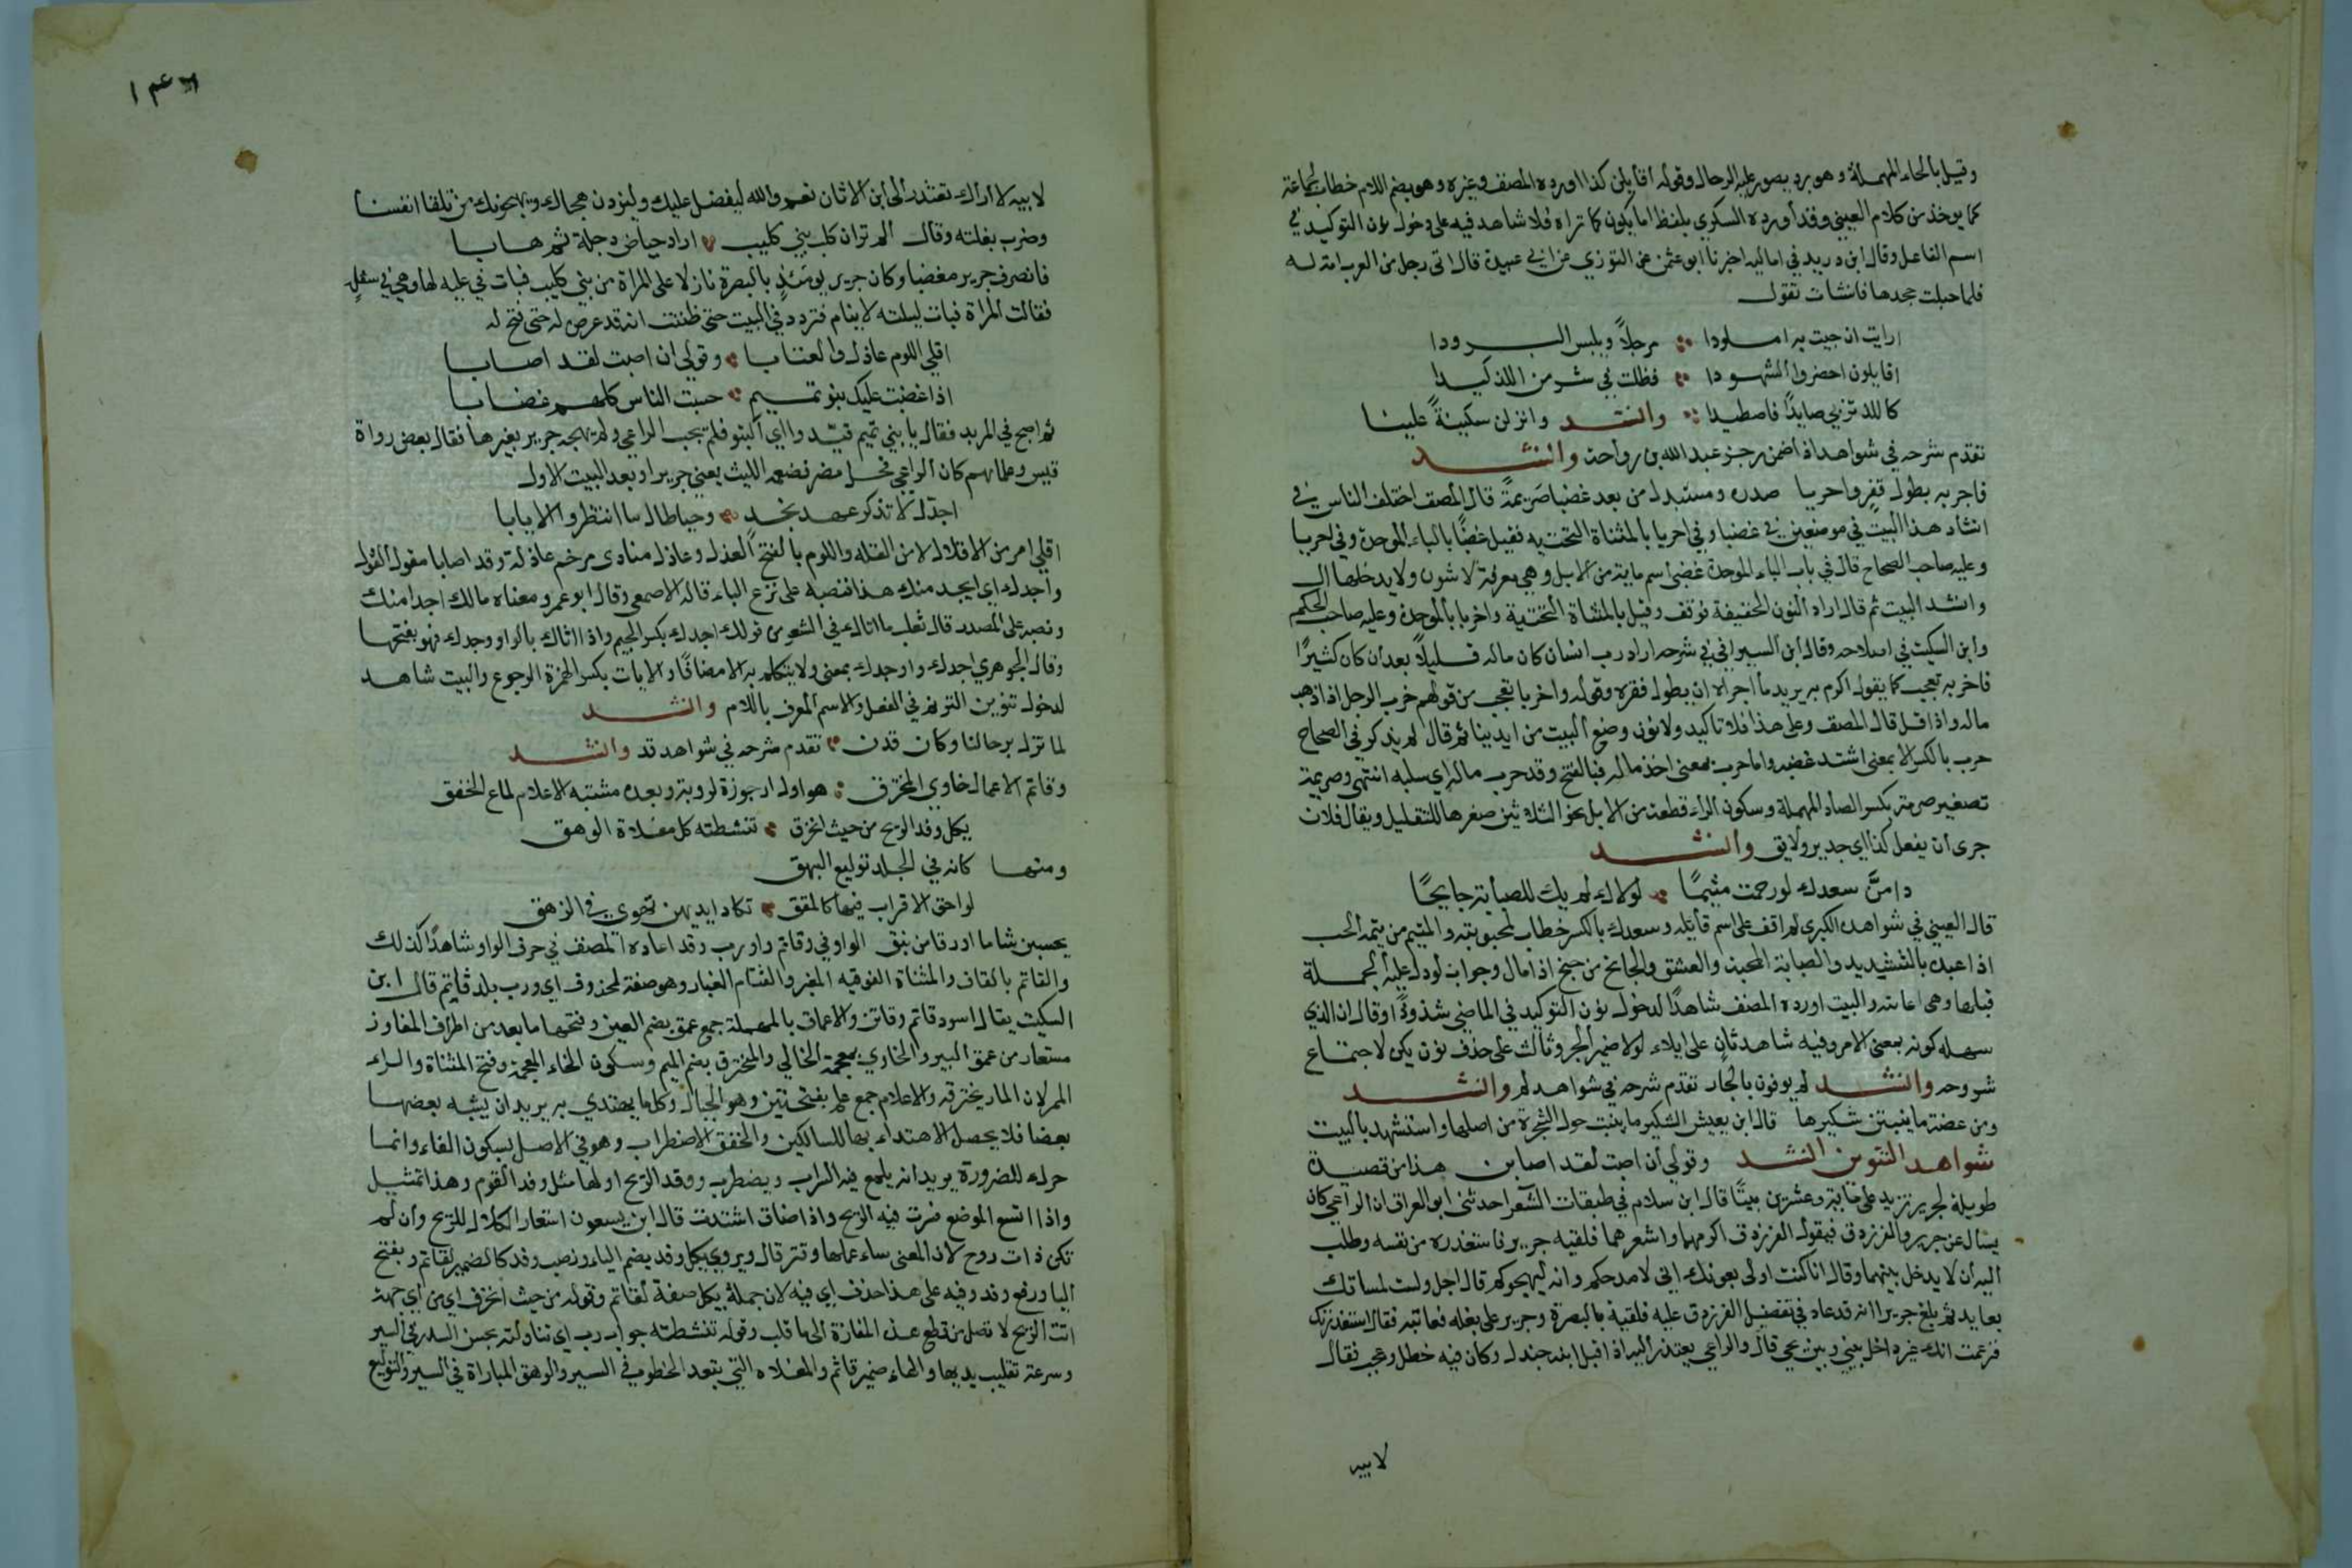 وقيل بالحاء المهملة وهو برد يصور عليه الرحال وقوله اقايلن كذا اورده المصنف وغيره وهو بضم اللام خطاب لجماعة
كما يوخذ من كلام العيني وقد أورده السكري بلفظ اما يكون كما تراه فلا شاهد فيه على دخول نون التوكيد في
اسم الفاعل وقال ابن دريد في اماليه اخبرنا ابو عثمن عن التوزي عن ابي عبيدة قال اتى رجل من العرب امة له
فلما حبلت جحدها فانشات تقول
ارايت ان جيت به املودا مرجلاً ويلبس البرودا
اقايلون احضروا الشهودا فظلت في شر من اللذ كيدا
كاللذ تزبي صايدًا فاصطيدا وانشد وانزلن سكينةً علينا
تقدم شرحه في شواهد اذا ضمن رجز عبد الله بن رواحة وانشد
فاجر به بطول قفر واحريا صدره ومستبدل من بعد غضيا صريمةً قال المصنف اختلف الناس في
انشاد هذا البيت في موضعين في غضيا وفي احريا بالمثناة التحتيه فقيل غضبًا بالباء الموحدة وفي احربا
وعليه صاحب الصحاح قال في باب الباء الموحدة غضبى اسم ماية من الابل وهي معرفة لا تنون ولا يدخلها ال
وانشد البيت ثم قال اراد النون الخفيفة فوقف وقيل بالمثناة التحتية واخربا بالموحدة وعليه صاحب المحكم
وابن السكيت في اصلاحه وقال ابن السيرافي في شرحه اراد رب انسان كان ماله قليلاً بعد ان كان كثيرًا
فاخر به تعجب كما يقول اكرم به يريد ما اجراه ان يطول فقره وقوله واخربا تعجب من قولهم خرب الرجل اذا ذهب
ماله واذا قل قال المصنف وعلى هذا فلا تاكيد ولا نون وضع البيت من ايدينا ثم قال لم يذكر في الصحاح
حرب بالكسر الا بمعنى اشتد غضبه واما حرب بمعنى اخذ ماله فبالفتح وقد حرب ماله اي سلبه انتهى وصريمة
تصغير صرمة بكسر الصاد المهملة وسكون الراء قطعة من الابل نحو الثلاثين صغرها للتقليل ويقال فلان
جرى ان يفعل كذا اي جدير ولايق وانشد
دامنَّ سعدك لو رحمت متيمًا لولاك لم يك للصبابة جانحًا
قال العيني في شواهده الكبرى لم اقف على اسم قايله وسعدك بالكسر خطاب لمحبوبته والمتيم من تيمه الحب
اذا عبده بالتشديد والصبابة المحبة والعشق والجانح من جنح اذا مال وجواب لو دل عليه الجملة
قبلها وهى اعاىته والبيت اورده المصنف شاهدًا لدخول نون التوكيد في الماضي شذوذًا وقال ان الذي
سهله كونه بمعنى الامر وفيه شاهد ثان على ايلاء لولا ضمير الجر وثالث على حذف نون يكن لاجتماع
شروحه وانشد لم يوفون بالجار تقدم شرحه في شواهد لم وانشد
ومن عضة ما ينبتن شكيرها قال ابن يعيش الشكير ما ينبت حول الشجرة من اصلها واستشهد بالبيت
شواهد التنوين انشد وقولي ان اصبت لقد اصابن هذا من قصيدة
طويلة لجرير تزيد على ماية وعشرين بيتًا قال ابن سلام في طبقات الشعرا حدثنى ابو العراف ان الراعي كان
يسال عن جرير والفرزدق فيقول الفرزدق اكرمهما واشعرهما فلقيه جرير فاستعذره من نفسه وطلب
اليه ان لا يدخل بينهما وقال انا كنت اولى بعونك انى لامدحكم وانه ليهجوكم قال اجل ولست لمساتك
بعايد ثم بلغ جريرا انه قد عاد في تفضيل الفرزدق عليه فلقيه بالبصرة وجرير على بغله فعاتبه فقال استعذرتك
فزعمت انك غير داخل بيني وبين عمي قال والراعي يعتذر اليه اذ اقبل ابنه جندل وكان فيه خطل وعجب فقال
لابيه
لابيه لا اراك تعتذر الى ابن الاتان نعم والله ليفضل عليك وليزدن هجاك ويهجونك من تلقا انفسنا
وضرب بغلته وقال الم تر ان كلب بني كليب اراد حياض دجلة ثم هابا
فانصرف جرير مغضبا وكان جرير يومئذ بالبصرة نازلا على امراة من بني كليب فبات في عليه لها وهي في سفل
فقالت المراة فبات ليلته لا ينام فتردد في البيت حتى ظننت انه قد عرض له حتى فتح له
اقلي اللوم عاذل والعتابا وقولي ان اصبت لقد اصابا
اذا غضبت عليك بنو تميم حسبت الناس كلهم غضابا
ثم اصبح في المربد فقال يا بني تميم قيدوا اي اكتبوا فلم يجب الراعي ولم يهجه جرير بغيرها فقال بعض رواة
قيس وعلمائهم كان الراعي فحل مضر فضغمه الليث يعني جريرا وبعد البيت الاول
اجدك لا تذكر عهد نجد وحيا طال ما انتظروا الايابا
اقلي امر من الاقلال لا من القله واللوم بالفتح العذل وعاذل منادى مرخم عاذلة وقد اصابا مقول القول
واجدك اي ايجد منك هذا فنصبه على نزع الباء قاله الاصمعي وقال ابو عمرو معناه مالك اجدا منك
ونصبه على المصدر قال ثعلب ما اتاك في الشعر من قولك اجدك بكسر الجيم واذا اتاك بالواو وجدك فهو بفتحها
وقال الجوهري اجدك واوجدك بمعنى ولا يتكلم به الا مضافًا والاياب بكسر الهمزة الرجوع والبيت شاهد
لدخول تنوين الترنم في الفعل والاسم المعرف باللام وانشد
لما تزل برحالنا وكان قدن تقدم شرحه في شواهد قد وانشد
وقاتم الاعماق خاوي المخترق هو اول ارجوزة لروبة وبعده مشتبه الاعلام لماع الخفق
يكل وفد الريح من حيث انخرق تنشطته كل مغلاة الوهق
ومنها كانه في الجلد توليع البهق
لواحق الاقراب فيها كالمقق تكاد ايديهن تهوي في الزهق
يحسبن شاما او رقا من نبق الواو في وقاتم واو رب وقد اعاده المصنف في حرف الواو شاهدًا كذلك
والقاتم بالقاف والمثناة الفوقيه المغبر والقتام الغبار وهو صفة لمحذوف اي ورب بلد قاتم قال ابن
السكيت يقال اسود قاتم وقاتن والاعماق بالمهملة جمع عمق بضم العين وفتحها ما بعد من اطراف المفاوز
مستعار من عمق البير والخاوي بمعجمة الخالي والمخترق بضم الميم وسكون الخاء المعجمة وفتح المثناة والراء
الممر لان المار يخترقه والاعلام جمع علم بفتحتين وهو الجبال وكل ما يهتدي به يريد ان يشبه بعضها
بعضا فلا يحصل الاهتداء بها للسالكين والخفق الاضطراب وهو في الاصل بسكون الفاء وانما
حرك للضرورة يريد انه يلمع فيه السراب ويضطرب ووفد الريح اولها مثل وفد القوم وهذا تمثيل
واذا اتسع الموضع فترت فيه الريح واذا ضاق اشتدت قال ابن يسعون استعار الكلال للريح وان لم
تكن ذات روح لان المعنى ساء عملها وتتر قال ويروى يكل وفد بضم الياء ونصب وفد كالضمير لقاتم وبفتح
اليا ورفع وفد وفيه على هذا حذف اي فيه لان جملة يكل صفة لقاتم وقوله من حيث انخرق اي من اي جهة
اتت الريح لا تصل من قطع هذه المفازة الى ما قلب وقوله تنشطته جواب رب اي تناولته بحسن السدر في السير
وسرعة تقليب يديها والهاء ضمير قاتم والمغلاه التي تبعد الخطو في السير والوهق المباراة في السير والتوليع